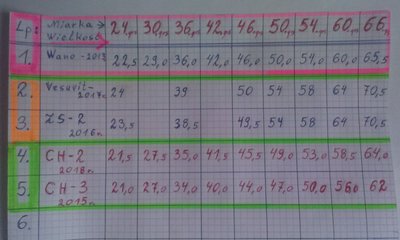 Lp: Miarka → 24 30 36 42 46 50 54 60 66
Wielkość
1. Wano - 2013 22,5 29,0 36,0 42,0 46,0 50,0 54,0 60,0 65,5
2. Vesuvit - 24 39 50 54 58 64 70,5
2017r.
3. ZS-2 23,5 38,5 49,5 54 58 64 70,5
2016r.
4. CH-2 21,5 27,5 35,0 41,5 45,5 49,0 53,0 58,5 64,0
2018r.
5. CH-3 21,0 27,0 34,0 40,0 44,0 47,0 50,0 56,0 62
2015r.
6.